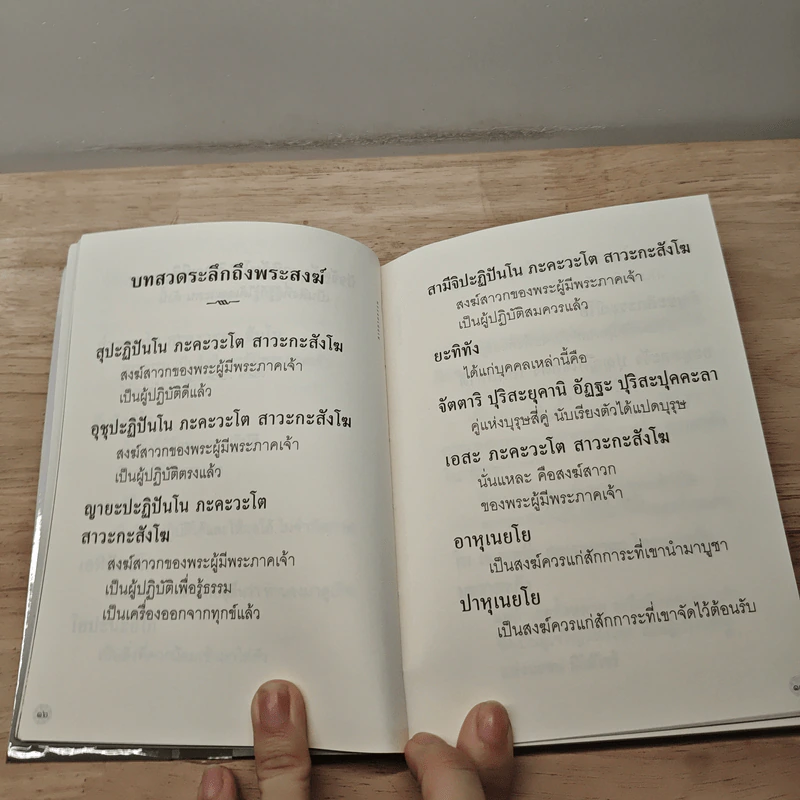 บทสวดระลึกถึงพระสงฆ์
สุปะฏิปันโน ภะคะวะโต สาวะกะสังโฆ
สงฆ์สาวกของพระผู้มีพระภาคเจ้า
เป็นผู้ปฏิบัติดีแล้ว
อุชุปะฏิปันโน ภะคะวะโต สาวะกะสังโฆ
สงฆ์สาวกของพระผู้มีพระภาคเจ้า
เป็นผู้ปฏิบัติตรงแล้ว
ญายะปะฏิปันโน ภะคะวะโต
สาวะกะสังโฆ
สงฆ์สาวกของพระผู้มีพระภาคเจ้า
เป็นผู้ปฏิบัติเพื่อรู้ธรรม
เป็นเครื่องออกจากทุกข์แล้ว
สามีจิปะฏิปันโน ภะคะวะโต สาวะกะสังโฆ
สงฆ์สาวกของพระผู้มีพระภาคเจ้า
เป็นผู้ปฏิบัติสมควรแล้ว
ยะทิทัง
ได้แก่บุคคลเหล่านี้คือ
จัตตาริ ปุริสะยุคานิ อัฏฐะ ปุริสะปุคคะลา
คู่แห่งบุรุษสี่คู่ นับเรียงตัวได้แปดบุรุษ
เอสะ ภะคะวะโต สาวะกะสังโฆ
นั่นแหละ คือสงฆ์สาวก
ของพระผู้มีพระภาคเจ้า
อาหุเนยโย
เป็นสงฆ์ควรแก่สักการะที่เขานำมาบูชา
ปาหุเนยโย
เป็นสงฆ์ควรแก่สักการะที่เขาจัดไว้ต้อนรับ